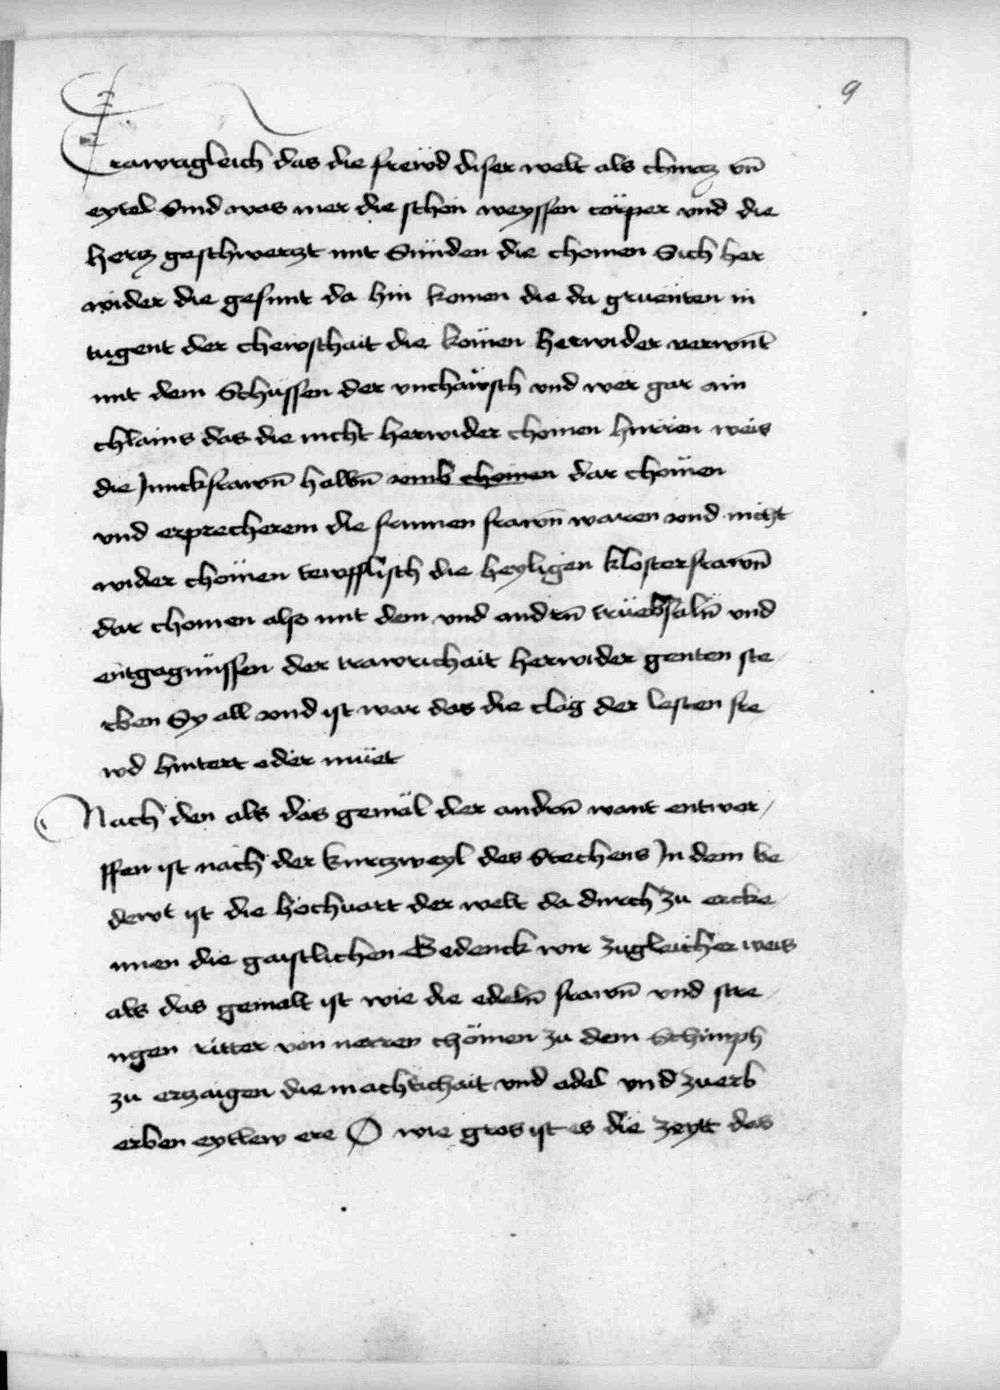 9
Trawrigleich das die frewd diser welt als churcz vn̄
eytel Sind was mer die schön weyssen cörper vnd die
hercz geschwerczt mit Sünden die chomen Sich her
wider die gesunt da hin komen die da gruenten in
tugent der chewschait die kömen herwider verwnt̄
mit dem Schüssen der vnchawsch vnd wer gar ain
chlains das die nicht herwider chomen hurrien weis
die Junckfrawn̄ halbn̄ vmb chomen dar chömen
vnd erprecherein die frumen frawn̄ waren vnd nicht
wider chömen tewfflisch die heyligen klosterfrawn̄
dar chomen also mit dem vnd andrn̄ trüebsaln̄ vnd
entgagnüssen der trawrichait herwider genten ste
rben Sy all vnd ist war das die clag der lesten fre
wd hintert oder müet
Nach den als das gemäl der andrn̄ want entwor
ffen ist nach der kurczweyl des Stechens In dem be
dewt ist die hochuart der welt da durch zu ercke
nnen die gaistlichen Gedenck wir zugleicher weis
als das gemalt ist wie die edeln̄ frawn̄ vnd stre
ngen ritter von verren chömen zu dem Schimph
zu erczaigen die machtichait vnd adel vnd zuerb
erben eytlew ere O wie gros ist es die zeytt des